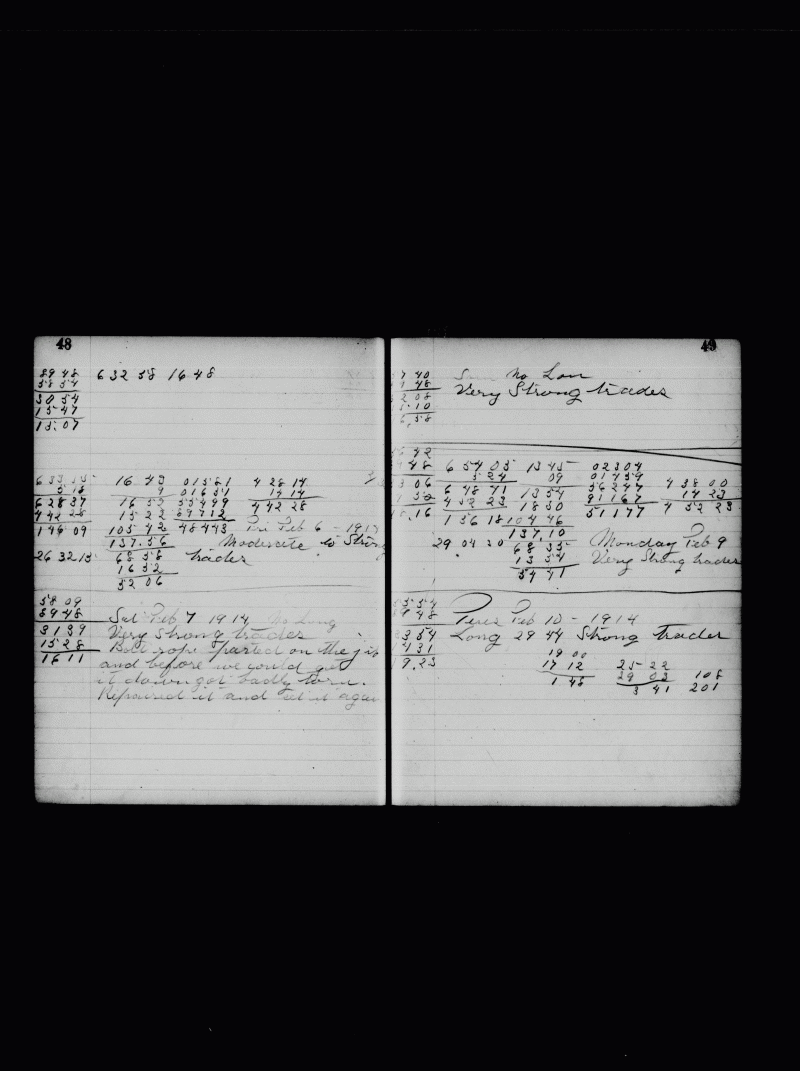 48
89 48
58 54
30 54
15 47
15.07
6 32 58 16 48
5 15
6 28 37
4 42 28
1 46 09
26 32 15
16 43
9
16 52
15 22
105 42
137.56
68 58
16 52
52 06
01581
01651
55499
69712
48443
4 28 14
14 14
4 42 28
Fri Feb 6 - 191
Moderate to Strong
trader
58 09
89 48
31 39
15 28
16 11
Sat Feb 7 1914 No Long
Very Strong trades
Bolt rope parted on the jib
and before we could get
it down got badly torn.
Repaired it and set it again
49
7 40
48
2 08
5 10
6,58
No Lon
Very Strong trades
42
48
06
18.16
6 54 05
5 24
6 48 41
4 52 23
1 56 18
29 04 30
13 45
09
13 54
18 30
104 46
137,10
68 35
13 54
54 41
02304
01454
56247
91167
51177
4 38 00
14 23
4 52 23
Monday Feb 9
Very Strong trades
55 54
48
54
4 31
9.23
Feb 10 - 1914
Long 29 44 Strong trader
19 00
17 12
1 48
25 22
29 03
3 41
108
201